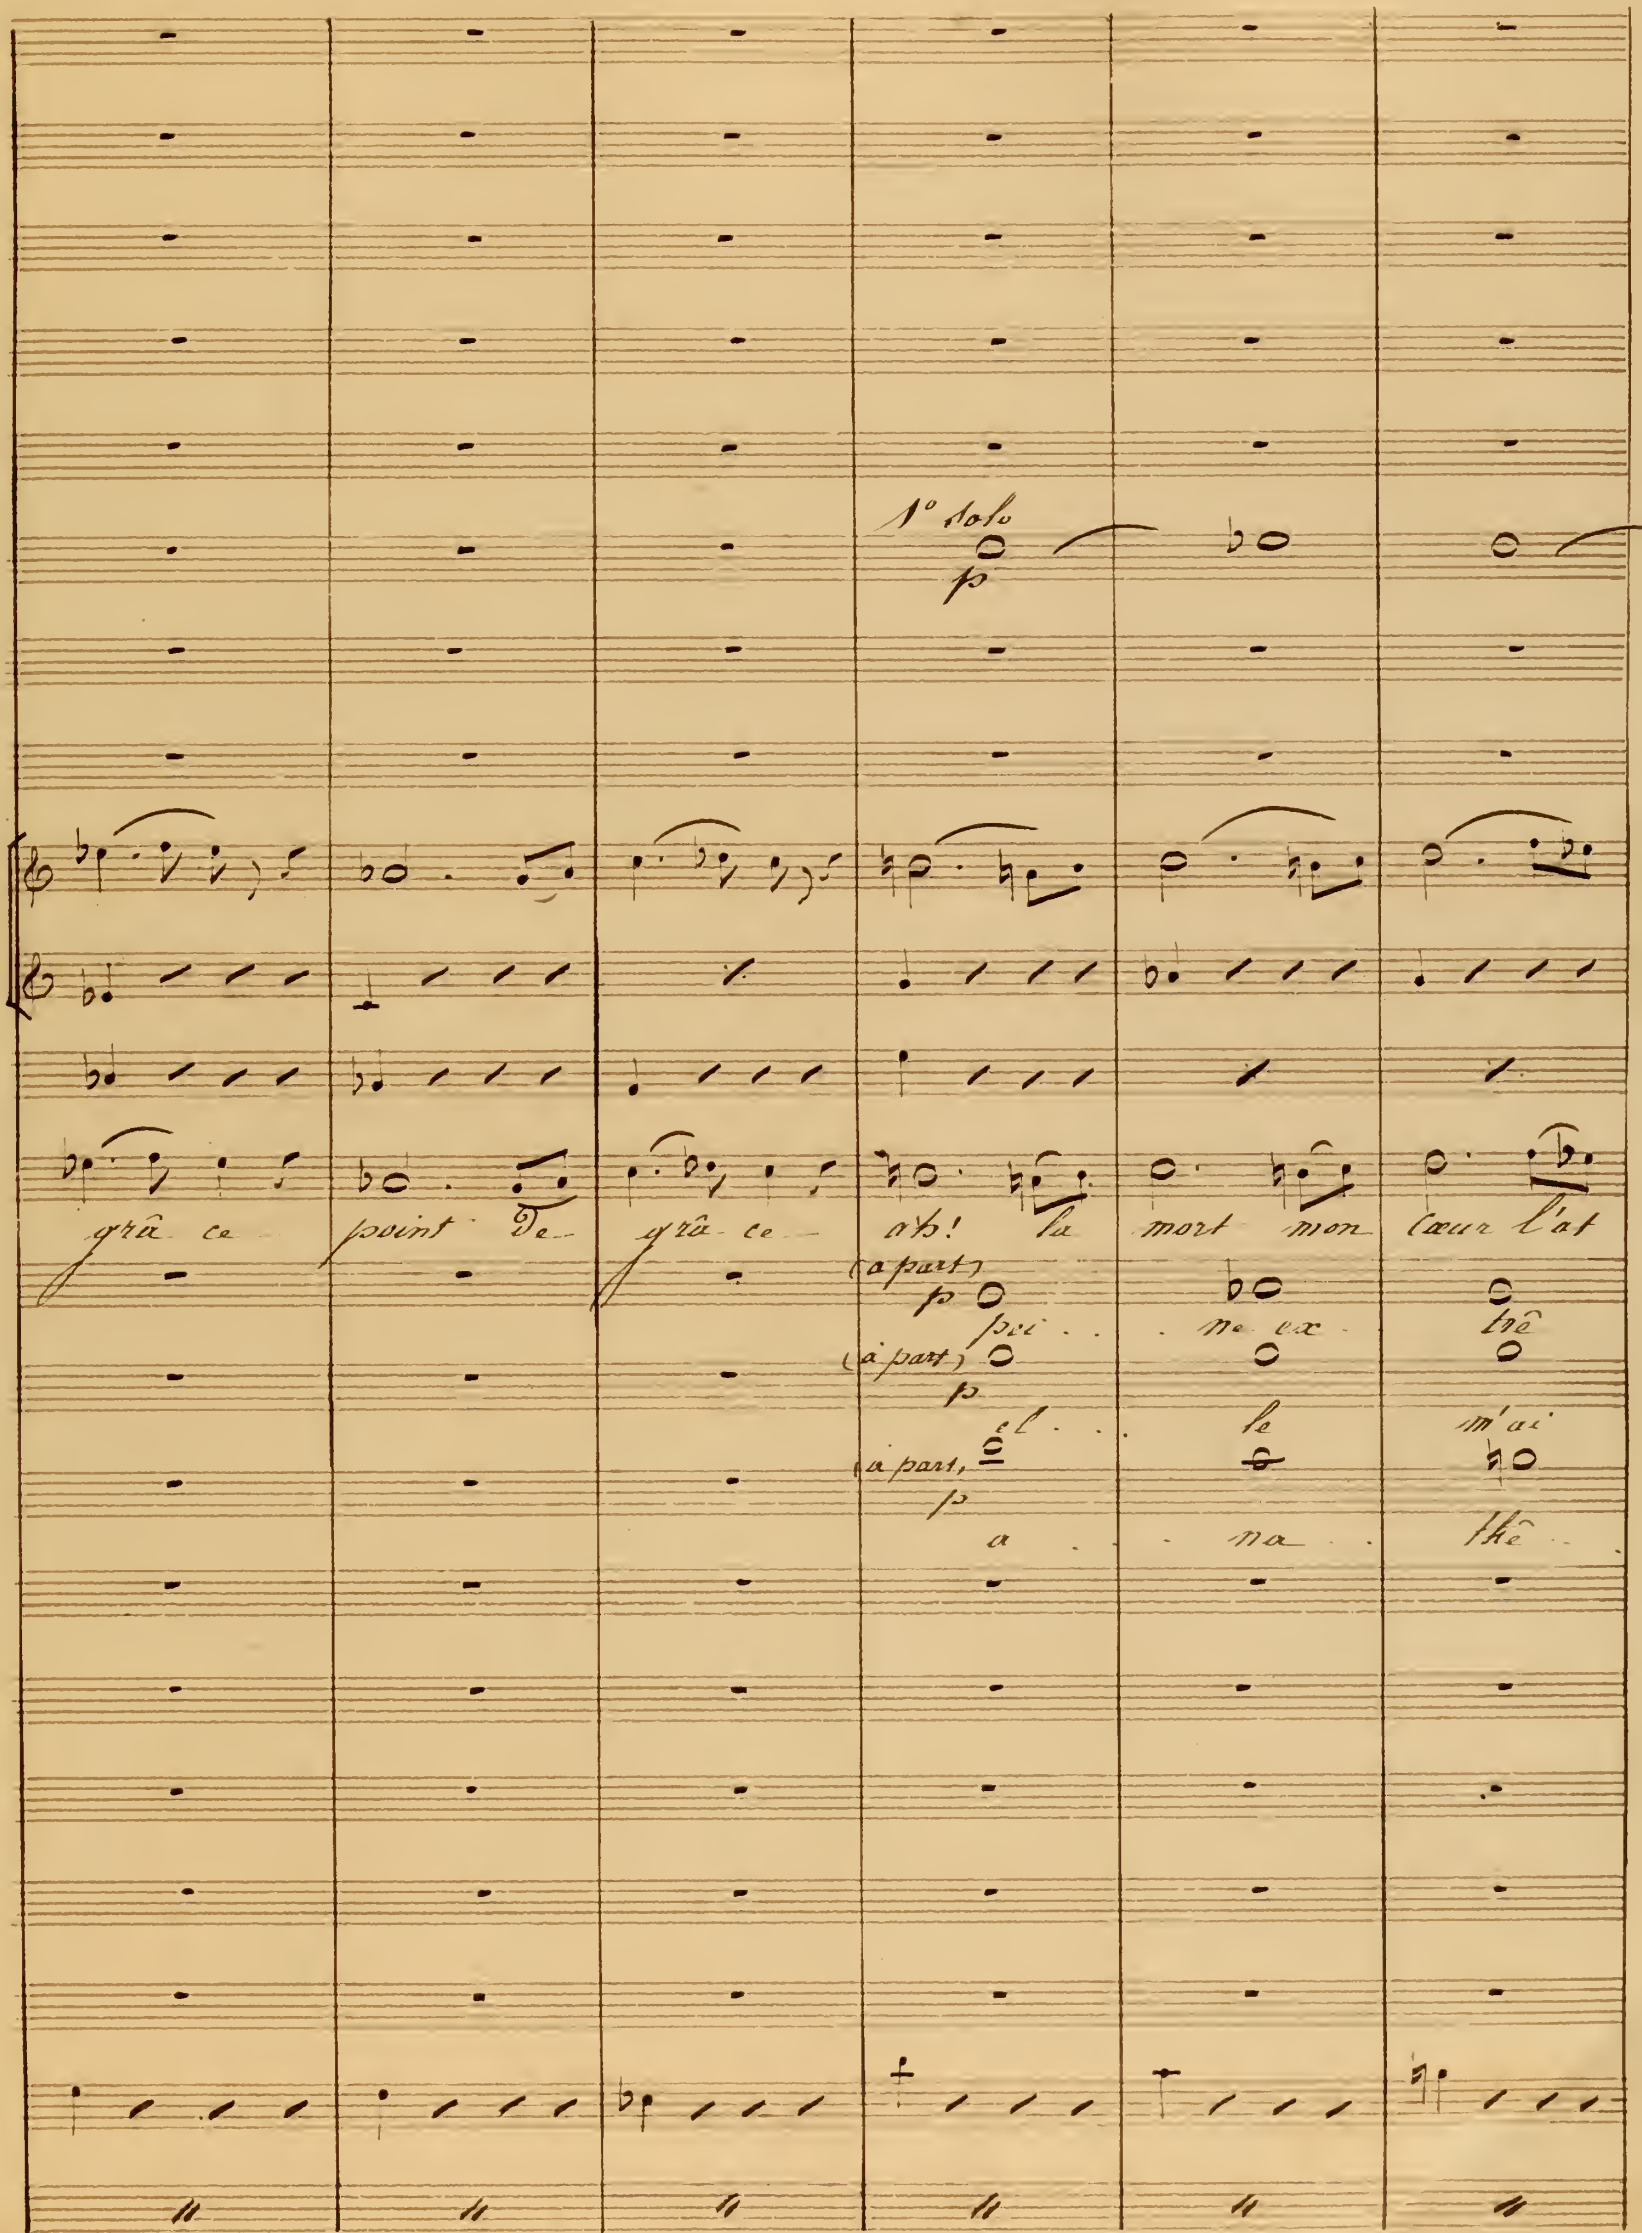 1º solo
p
grâ ce point De grâ ce ah! la mort mon cœur l'at
(a part)
p
pei . . . ne ex . trê
(à part)
p
el . . . le m'ai
(a part,
p
a . . . na . . . thê . . .